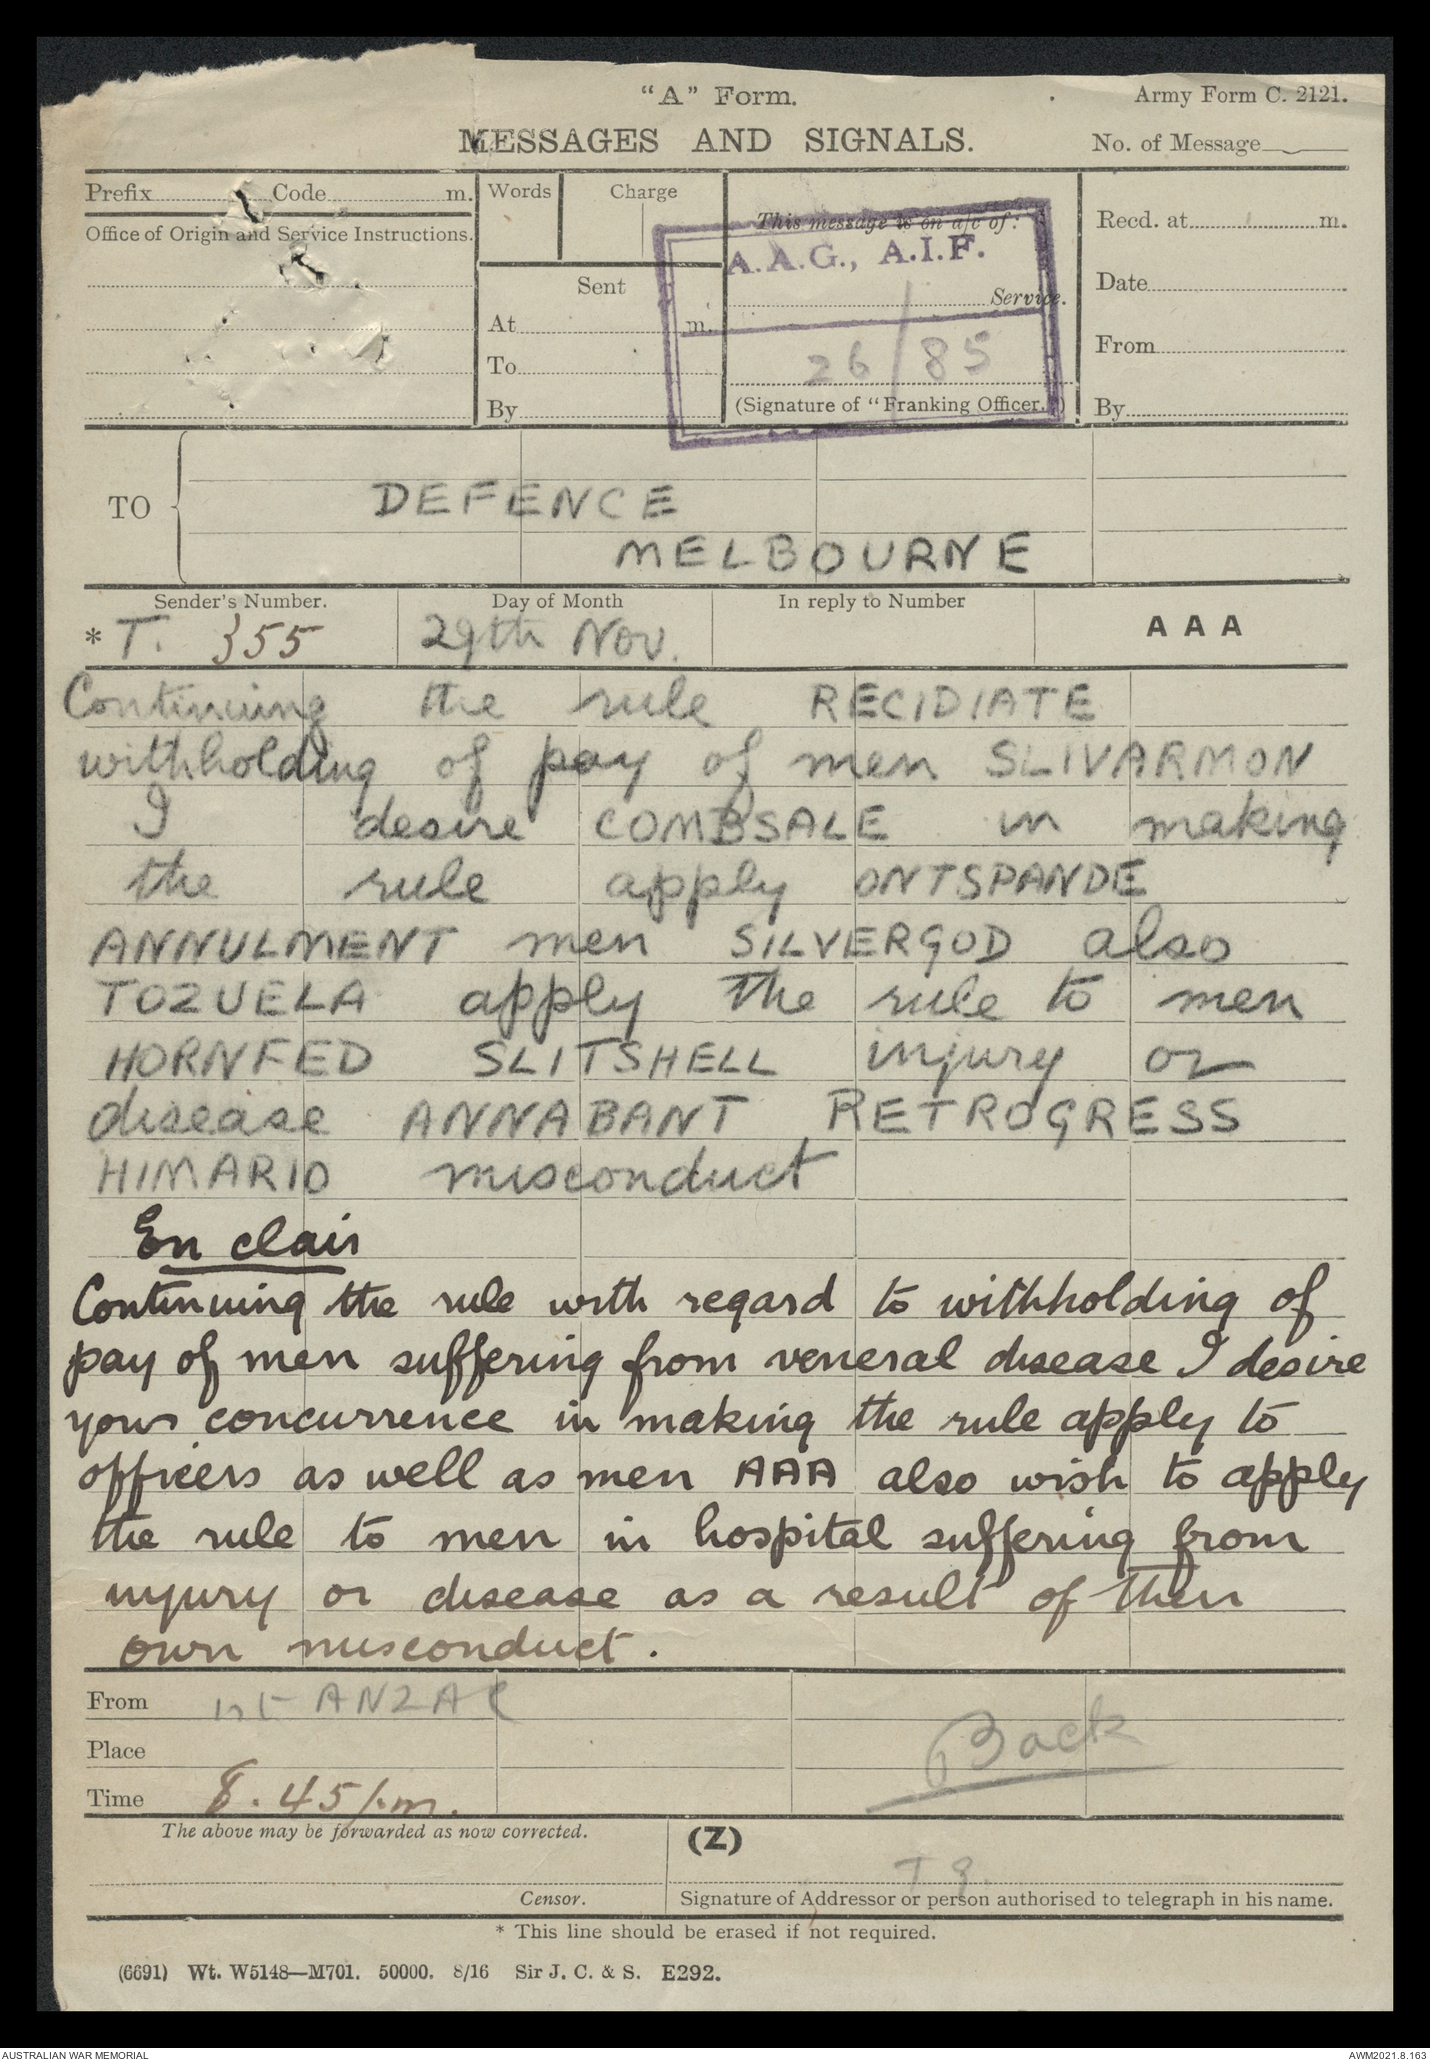 "A" Form.
Army Form C. 2121.
MESSAGES AND SIGNALS.
No. of Message
Prefix Code m.
Words Charge
This message is on a/c of:
Recd. at m.
Office of Origin and Service Instructions.
A.A.G., A.I.F.
Sent
Service.
Date
At m.
From
To
26/85
By
(Signature of "Franking Officer.")
By
TO
DEFENCE
MELBOURNE
Sender's Number.
Day of Month
In reply to Number
AAA
* T. 355
29th Nov.
Continuing the rule RECIDIATE
withholding of pay of men SLIVARMON
I desire COMBSALE in making
the rule apply ONTSPANDE
ANNULMENT men SILVERGOD also
TOZUELA apply the rule to men
HORNFED SLITSHELL injury or
disease ANNABANT RETROGRESS
HIMARIO misconduct
En clair
Continuing the rule with regard to withholding of
pay of men suffering from veneral disease I desire
your concurrence in making the rule apply to
officers as well as men AAA also wish to apply
the rule to men in hospital suffering from
injury or disease as a result of their
own misconduct.
From 1st ANZAC
Back
Place
Time 8.45 p.m.
The above may be forwarded as now corrected.
(Z)
Censor.
Signature of Addressor or person authorised to telegraph in his name.
* This line should be erased if not required.
(6691) Wt. W5148—M701. 50000. 8/16 Sir J. C. & S. E292.
AUSTRALIAN WAR MEMORIAL
AWM2021.8.163